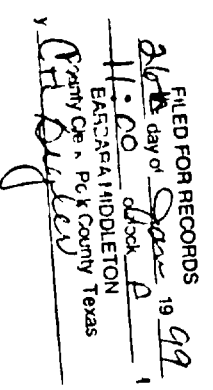 FILED FOR RECORDS
26th day of Jan 19 99
11:00 o'clock P
BARBARA MIDDLETON
County Clerk Polk County Texas
y